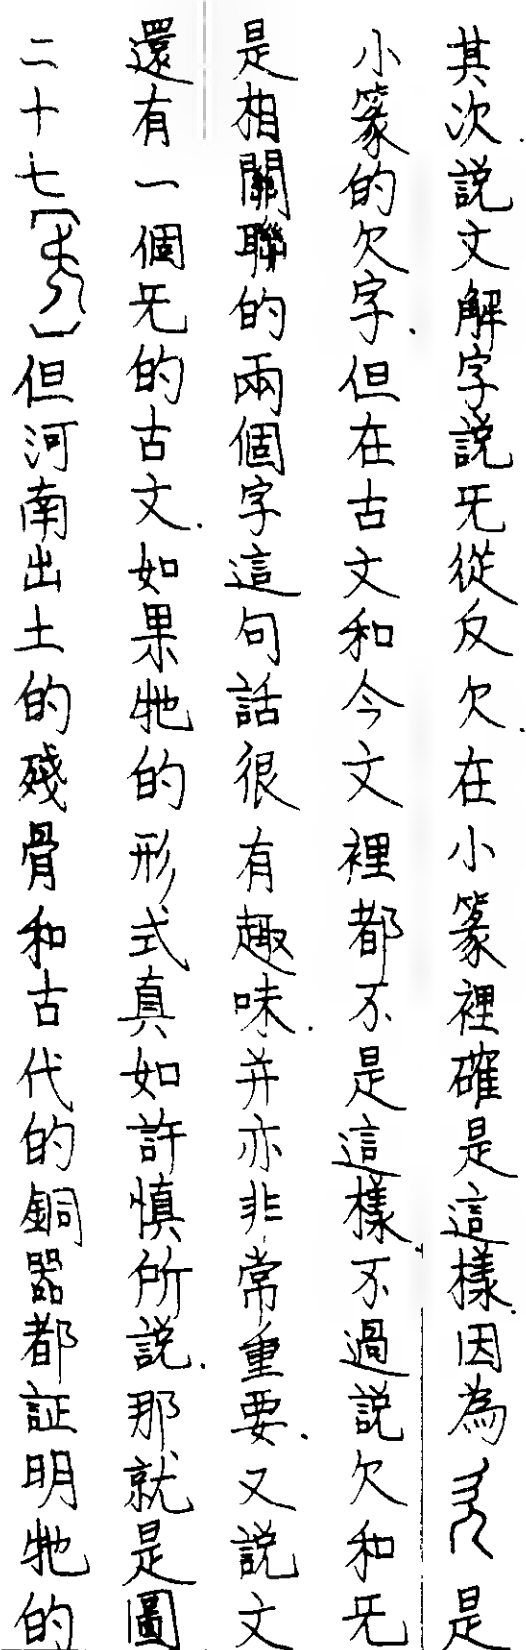 其次.説文解字説旡從反欠.在小篆裡確是這樣.因為是
小篆的欠字.但在古文和今文裡都不是這樣.不過説欠和旡
是相關聯的兩個字這句話很有趣味.并亦非常重要.又説文
還有一個旡的古文.如果牠的形式真如許慎所説.那就是圖
二十七〔〕但河南出土的殘骨和古代的銅器都証明牠的